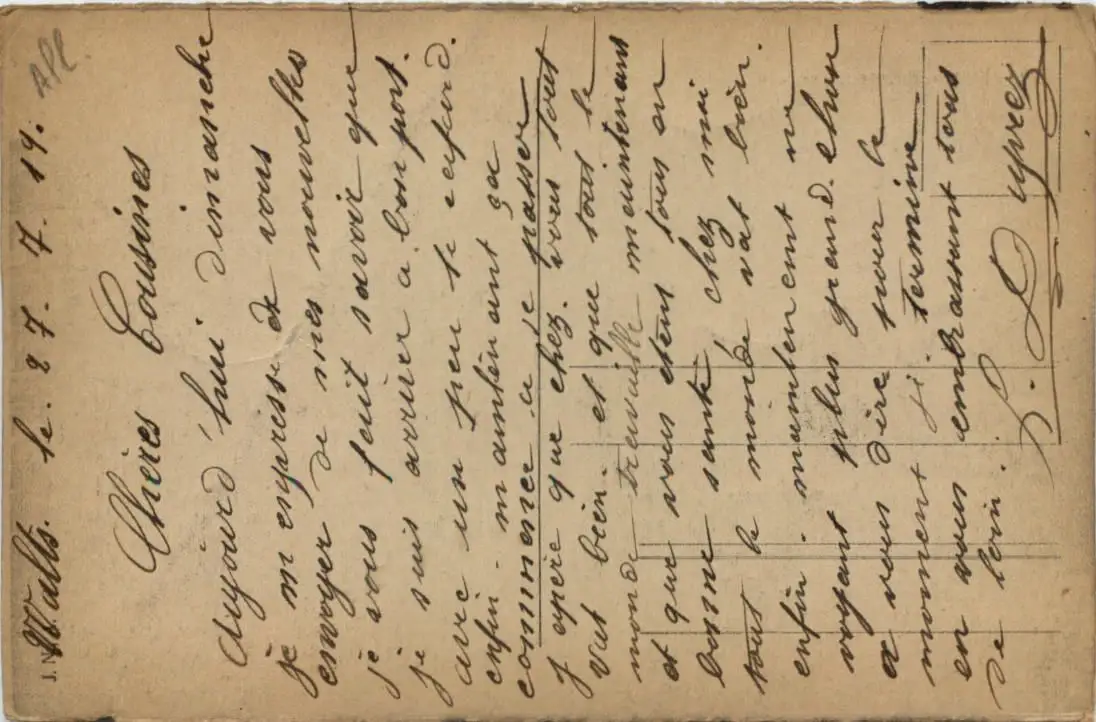 Wults. le. 27. 7. 19. APL.
Chères Cousines
Aujourd'hui dimanche
je m empresse de vous
envoyer de mes nouvelles
je vous fait savoir que
je suis arriver a bon port.
avec un peu de cafard.
enfin. m antenant ça
commence a se passer
J espère que chez. vous tout
vat bien. et que tout le
monde travaille maintenant
et que vous êtens tous en
bonne santé chez moi
tout le monde vat bien.
enfin. maintenent ne
voyant plus grand. chose
a vous dire pour le
moment je. termine
en vous embrassant tous
de loin. L. Duprez
J.N